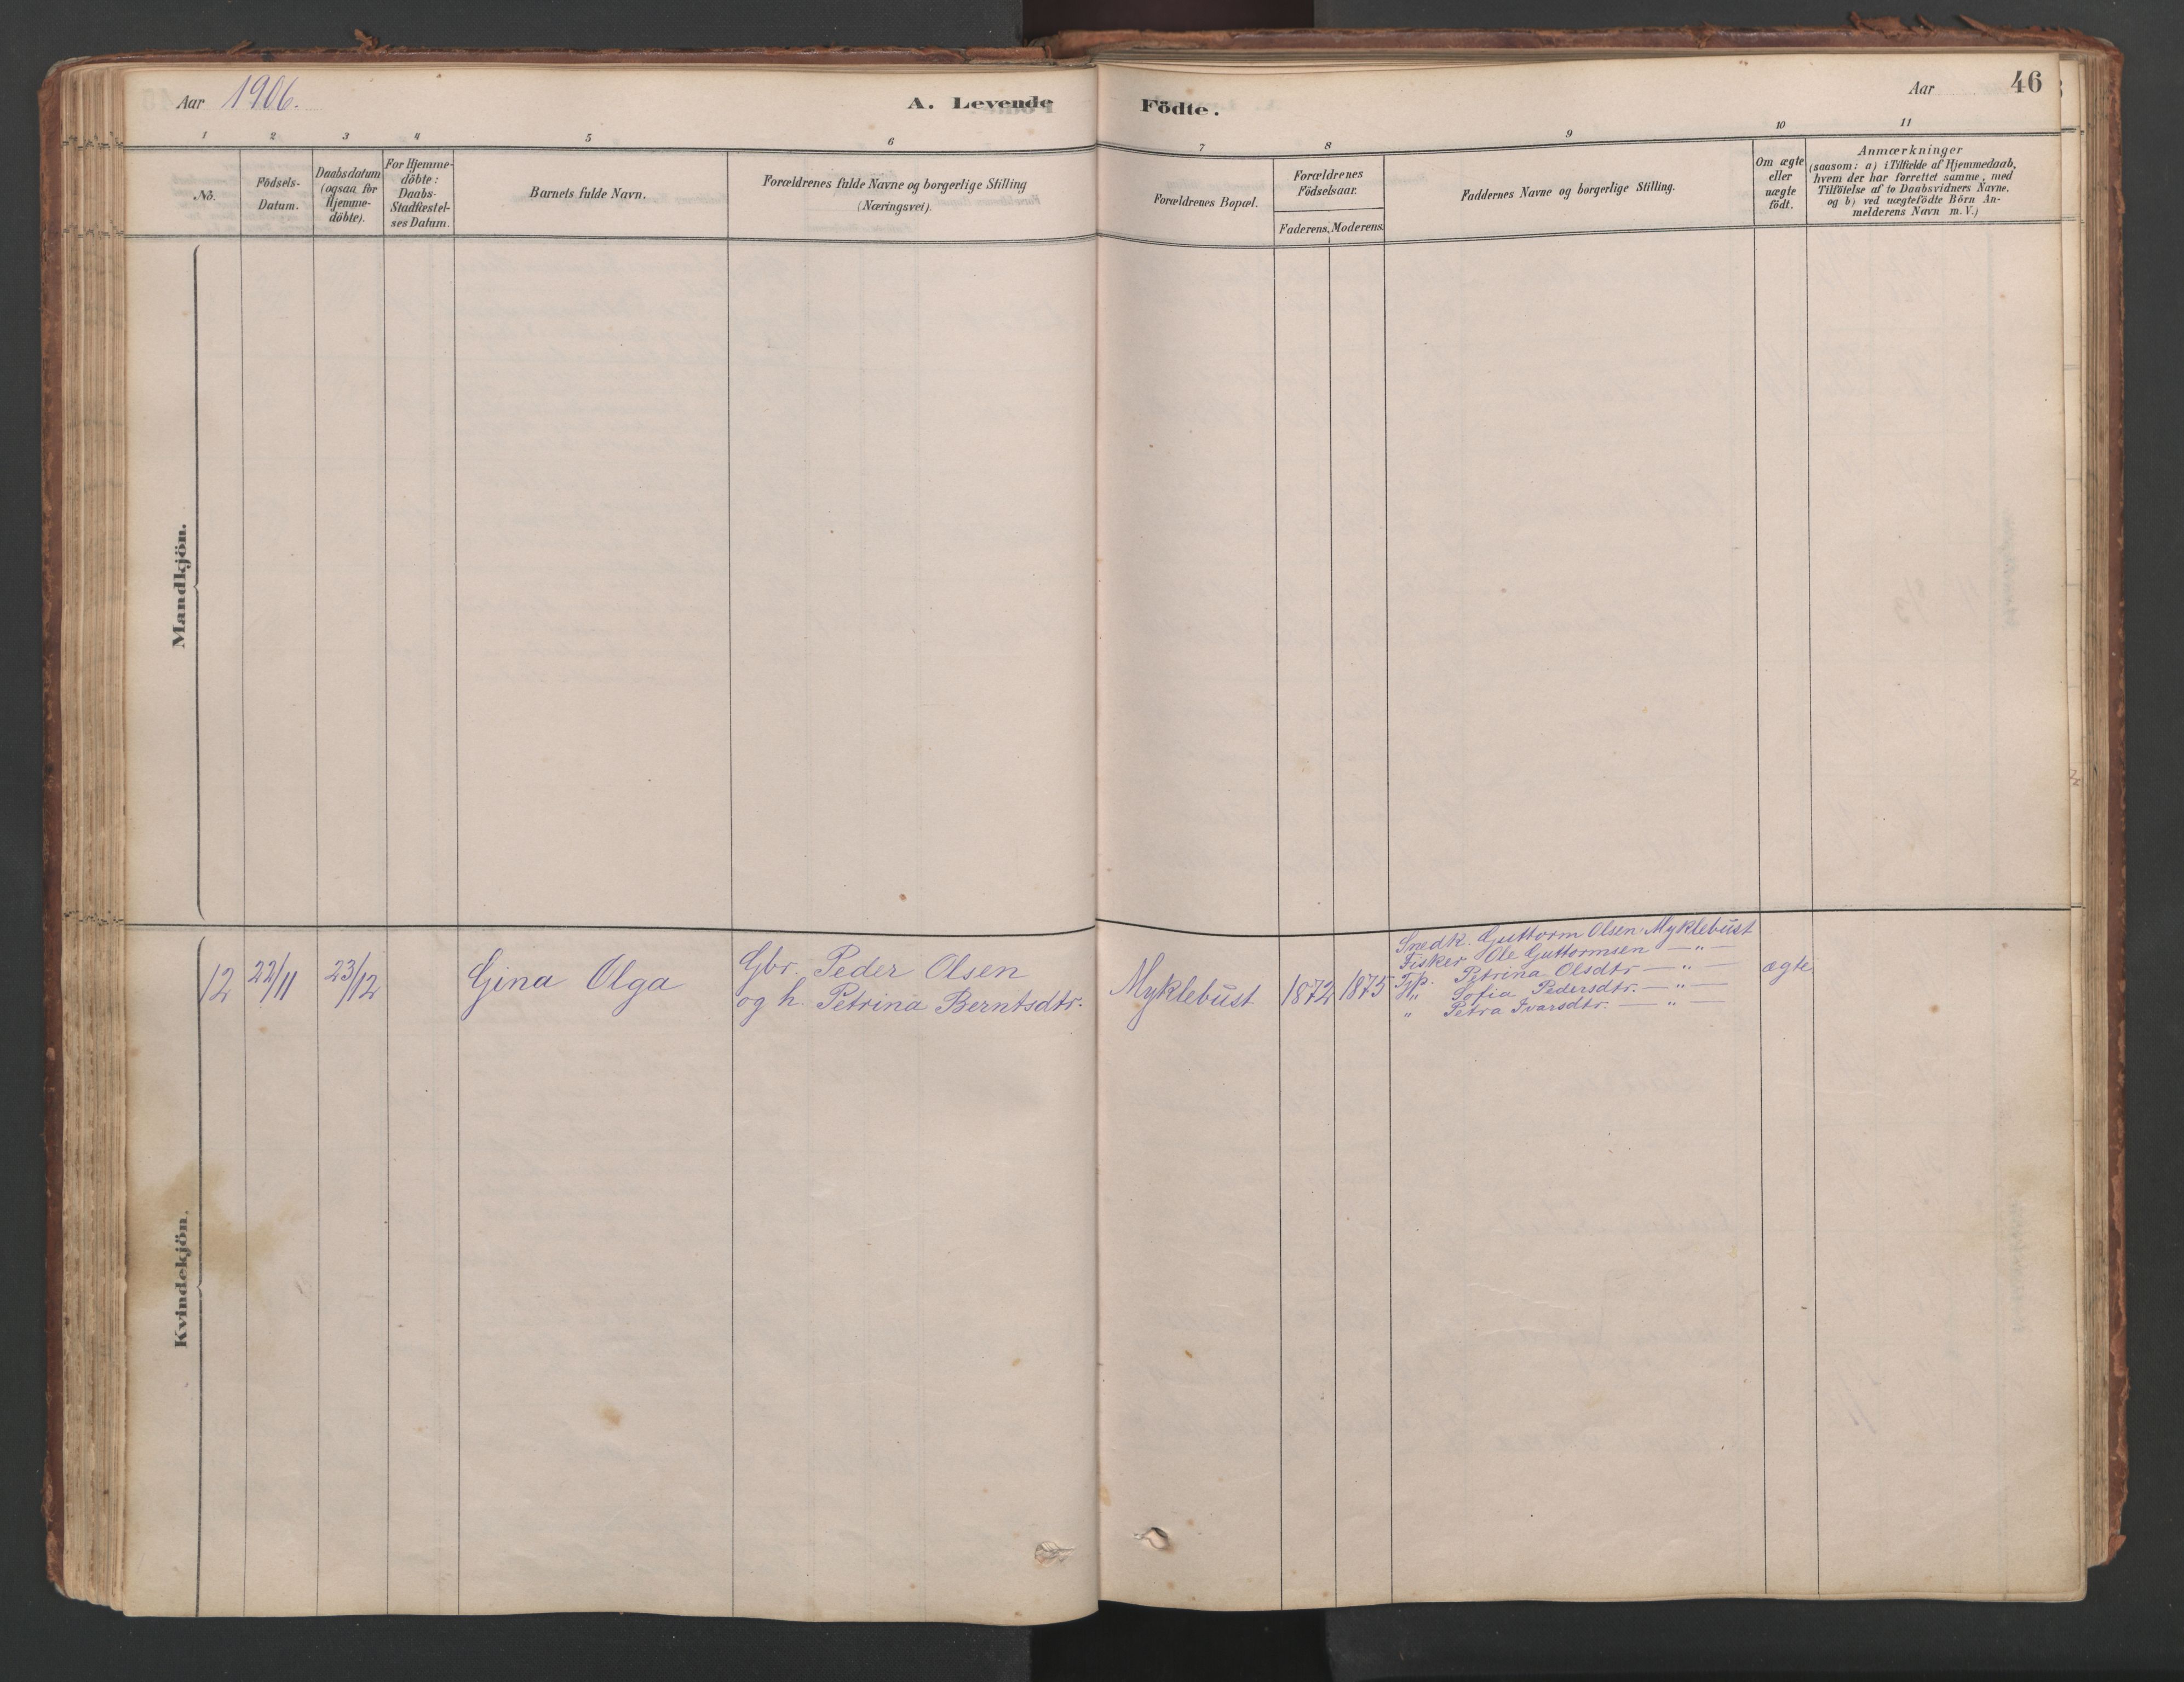 Aar 1906.
A. Levende Födte.
Aar
46
1 2 3 4 5 6 7 8 9 10 11
Nō.
Födsels-
Datum.
Daabsdatum
(ogsaa for
Hjemme-
döbte).
For Hjemme-
döbte:
Daabs-
Stadfæstel-
ses Datum.
Barnets fulde Navn.
Forældrenes fulde Navne og borgerlige Stilling
(Næringsvei).
Forældrenes Bopæl.
Forældrenes
Födselsaar.
Faderens. Moderens.
Faddernes Navne og borgerlige Stilling.
Om ægte
eller
uægte
födt.
Anmærkninger
(saasom: a) i Tilfælde af Hjemmedaab,
hvem der har forrettet samme, med
Tilföielse af to Daabsvidners Navne.
og b) ved uægtefödte Börn An-
melderens Navn m. V.)
Mandkjön.
Kvindekjön.
12 22/11 23/12 Gina Olga
Gbr. Peder Olsen
og h. Petrina Berntsdtr.
Myklebust 1872 1875
Snedk. Guttorm Olsen Myklebust
Fisker Ole Guttormsen — " —
Petrina Olsdtr — " —
" Sofia Pedersdtr. — " —
" Petra Ivarsdtr. — " —
ægte